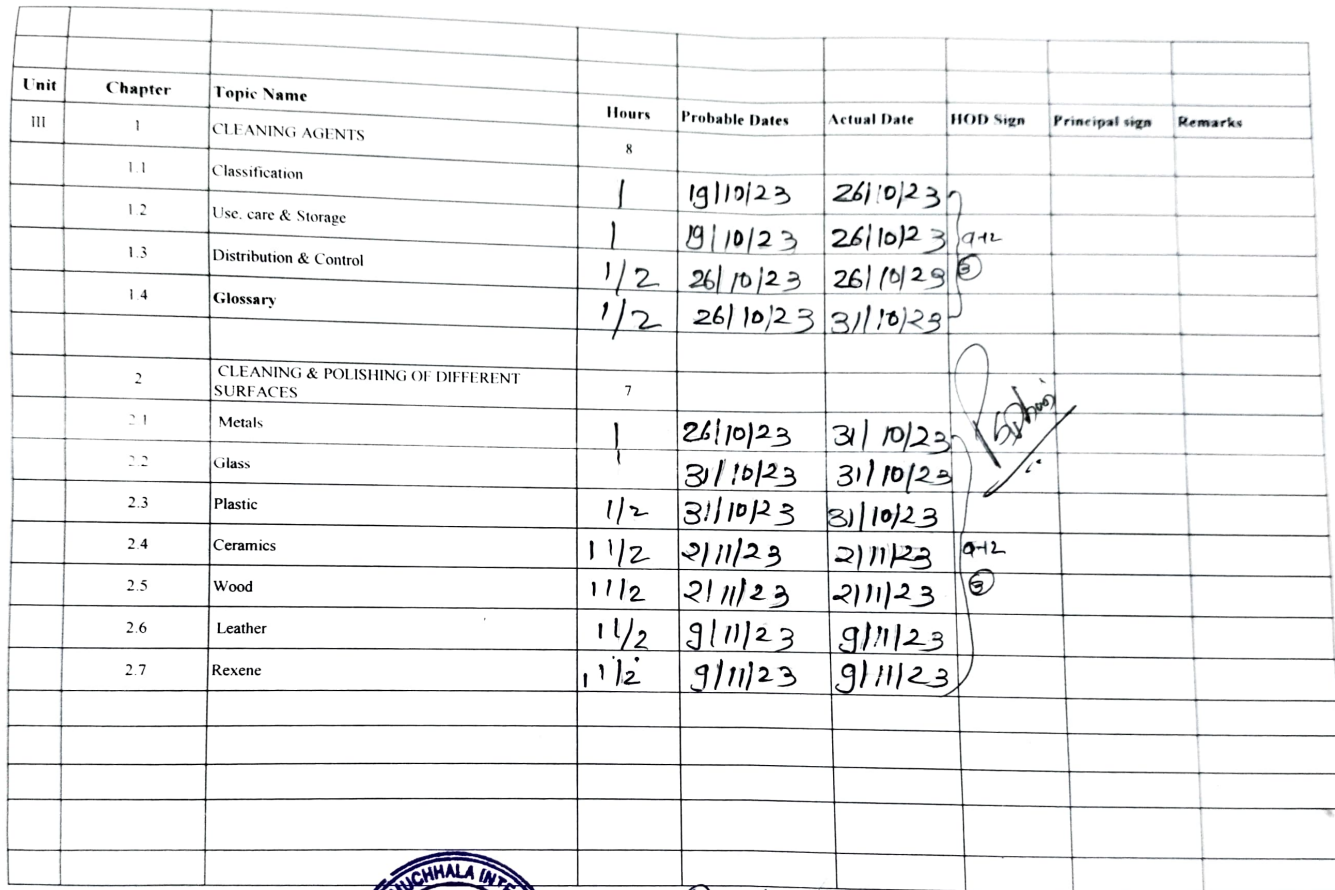 Unit Chapter Topic Name Hours Probable Dates Actual Date HOD Sign Principal sign Remarks
III 1 CLEANING AGENTS 8
1.1 Classification 1 19/10/23 26/10/23
1.2 Use, care & Storage 1 19/10/23 26/10/23
1.3 Distribution & Control 1/2 26/10/23 26/10/23
1.4 Glossary 1/2 26/10/23 31/10/23
2 CLEANING & POLISHING OF DIFFERENT
SURFACES 7
2.1 Metals 1 26/10/23 31/10/23
2.2 Glass 1 31/10/23 31/10/23
2.3 Plastic 1/2 31/10/23 31/10/23
2.4 Ceramics 1 1/2 2/11/23 2/11/23
2.5 Wood 1 1/2 2/11/23 2/11/23
2.6 Leather 1 1/2 9/11/23 9/11/23
2.7 Rexene 1 1/2 9/11/23 9/11/23